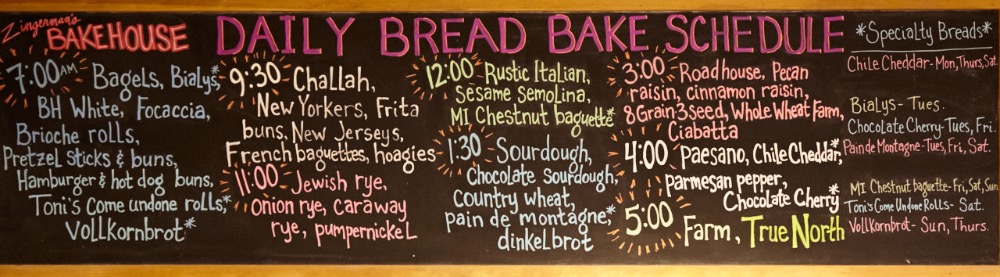 Zingerman's
BAKEHOUSE
DAILY BREAD BAKE SCHEDULE
7:00AM Bagels, Bialys*,
BH White, Focaccia,
Brioche rolls,
Pretzel sticks & buns,
Hamburger & hot dog buns,
Toni's Come undone rolls*,
Vollkornbrot*
9:30 Challah,
New Yorkers, Frita
buns, New Jerseys,
French baguettes, hoagies
11:00 Jewish rye,
Onion rye, Caraway
rye, pumpernickel
12:00 Rustic Italian,
Sesame Semolina,
MI Chestnut baguette*
1:30 Sourdough,
Chocolate Sourdough,
Country wheat,
pain de montagne*,
dinkelbrot
3:00 Roadhouse, Pecan
raisin, cinnamon raisin,
8 Grain 3 seed, Whole Wheat Farm,
Ciabatta
4:00 Paesano, Chile Cheddar*,
Parmesan pepper,
Chocolate Cherry*
5:00 Farm, True North
*Specialty Breads*
Chile Cheddar- Mon, Thurs, Sat
Bialys- Tues.
Chocolate Cherry-Tues, Fri.
Pain de Montagne-Tues, Fri, Sat.
MI Chestnut baguette-Fri, Sat, Sun
Toni's Come Undone Rolls- Sat.
Vollkornbrot- Sun, Thurs.